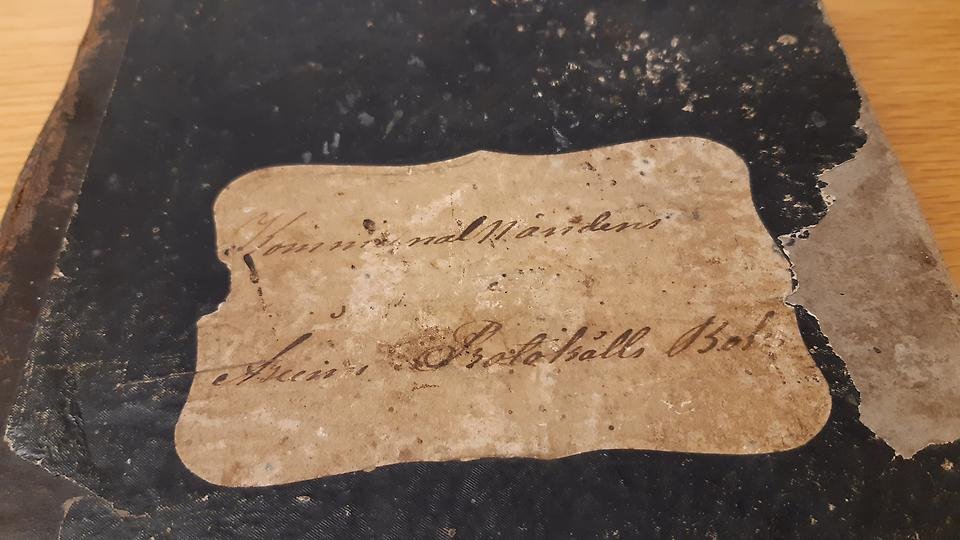 Kommunal Nämdens
i
Protokolls Bok